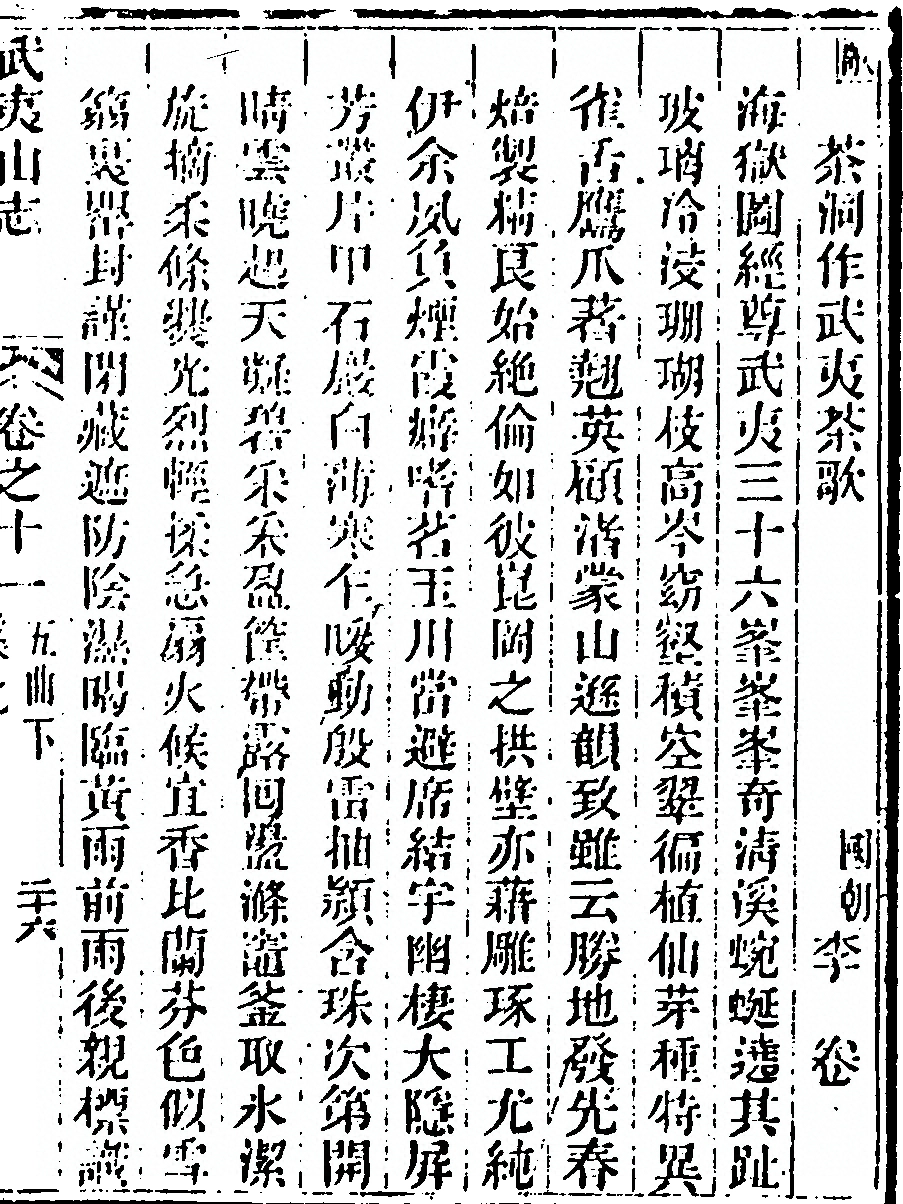 茶洞作武夷茶歌 國朝李卷
海嶽圖經尊武夷三十六峯峯峯奇清溪蜿蜒遶其趾
玻璃冷浸珊瑚枝高岑窈壑積空翠徧植仙芽種特異
雀舌鷹爪著翹英顧渚蒙山遜韻致雖云勝地發先春
焙製精良始絶倫如彼崑岡之拱璧亦藉雕琢工尤純
伊余夙負煙霞癖嗜茗玉川當避席結宇幽棲大隱屏
芳叢片甲石巖白薄寒乍暖動殷雷抽頴含珠次第開
晴雲曉起天凝碧采采盈筐帶露回盥滌滌釜取水潔
旋摘柔條發光烈輕揉急扇火候宜香比蘭芬色似雪
裹器封謹閉藏遮防陰濕暍臨黃雨前雨後親標識
武夷山志 卷之十一 五曲下 二十六